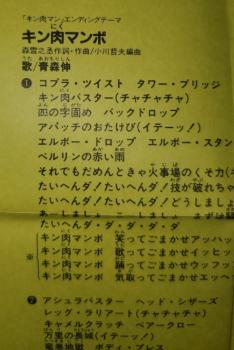 「キン肉マン」エンディングテーマ
キン肉マンボ
森雪之丞作詞・作曲/小川哲夫編曲
歌/青森伸
① コブラ・ツイスト タワー・ブリッジ
キン肉バスター(チャチャチャ)
四の字固め バックドロップ
アパッチのおたけび(イテーッ!)
エルボー・ドロップ エルボー・スタン
ベルリンの赤い雨
それでもだめんときゃ火事場のくそ力(
たいへんダ!たいへんダ!技が破れちゃ
たいへんダ!たいへんダ!どうしましょ
あーしましょ こーしましょ まずは
※
キン肉マンボ 笑ってごまかせアッハッ
キン肉マンボ 歌ってごまかせイッヒッ
キン肉マンボ 踊ってごまかせウッフッ
キン肉マンボ 気取ってごまかせエッヘ
② アシュラバスター ヘッド・シザーズ
レッグ・ラリアート(チャチャチャ)
キャメルクラッチ ベアークロー
万里の長城(イテーッ!)
竜巻地獄 ボディ・プレス